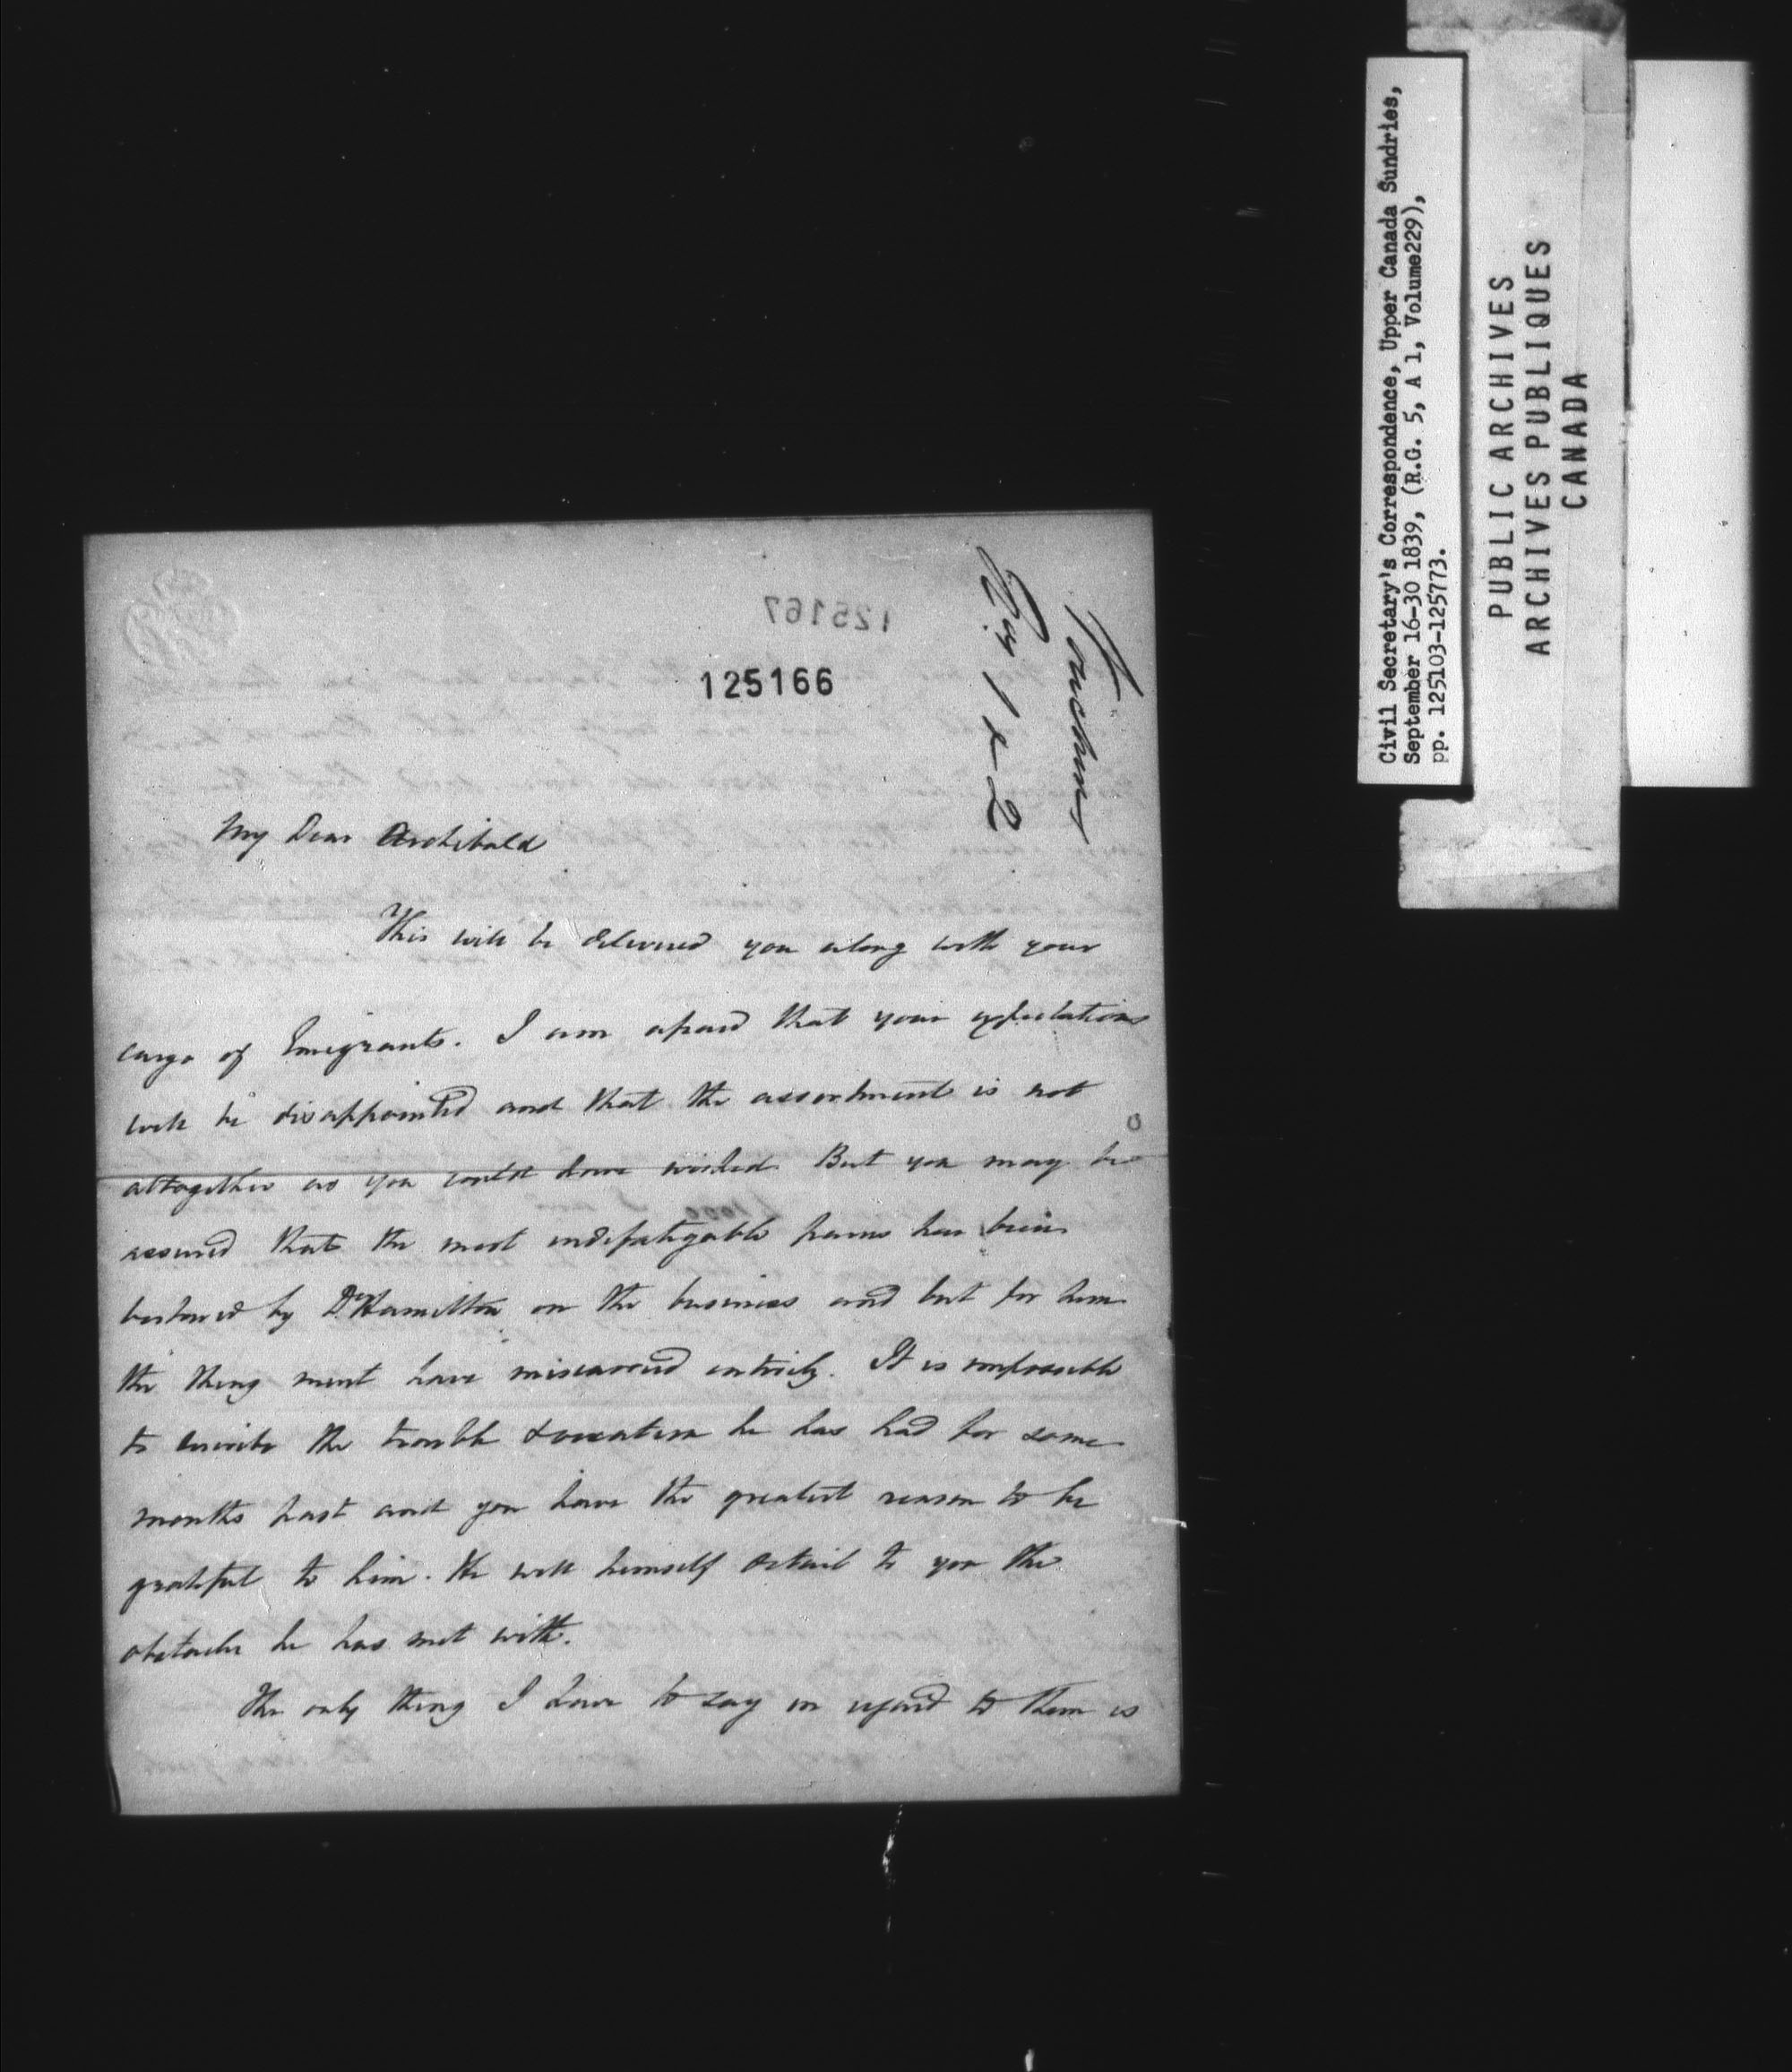 Civil Secretary's Correspondence, Upper Canada Sundries,
September 16-30 1839, (R.G. 5, A 1, Volume229),
pp. 125103-125773.
PUBLIC ARCHIVES
ARCHIVES PUBLIQUES
CANADA
Vouchers
1 & 2
125167
125166
My Dear Archibald
This will be delivered you along with your
cargo of Emigrants. I am afraid that your expectations
will be disappointed and that the assortment is not
altogether as you could have wished. But you may be
assured that the most indefatigable pains has been
bestowed by Dr Hamilton on the business and but for him
the thing must have miscarried entirely. It is impossible
to the trouble & vexation he has had for some
months past and you have the greatest reason to be
grateful to him. He will himself detail to you the
obstacles he has met with.
The only thing I have to say in regard to them is